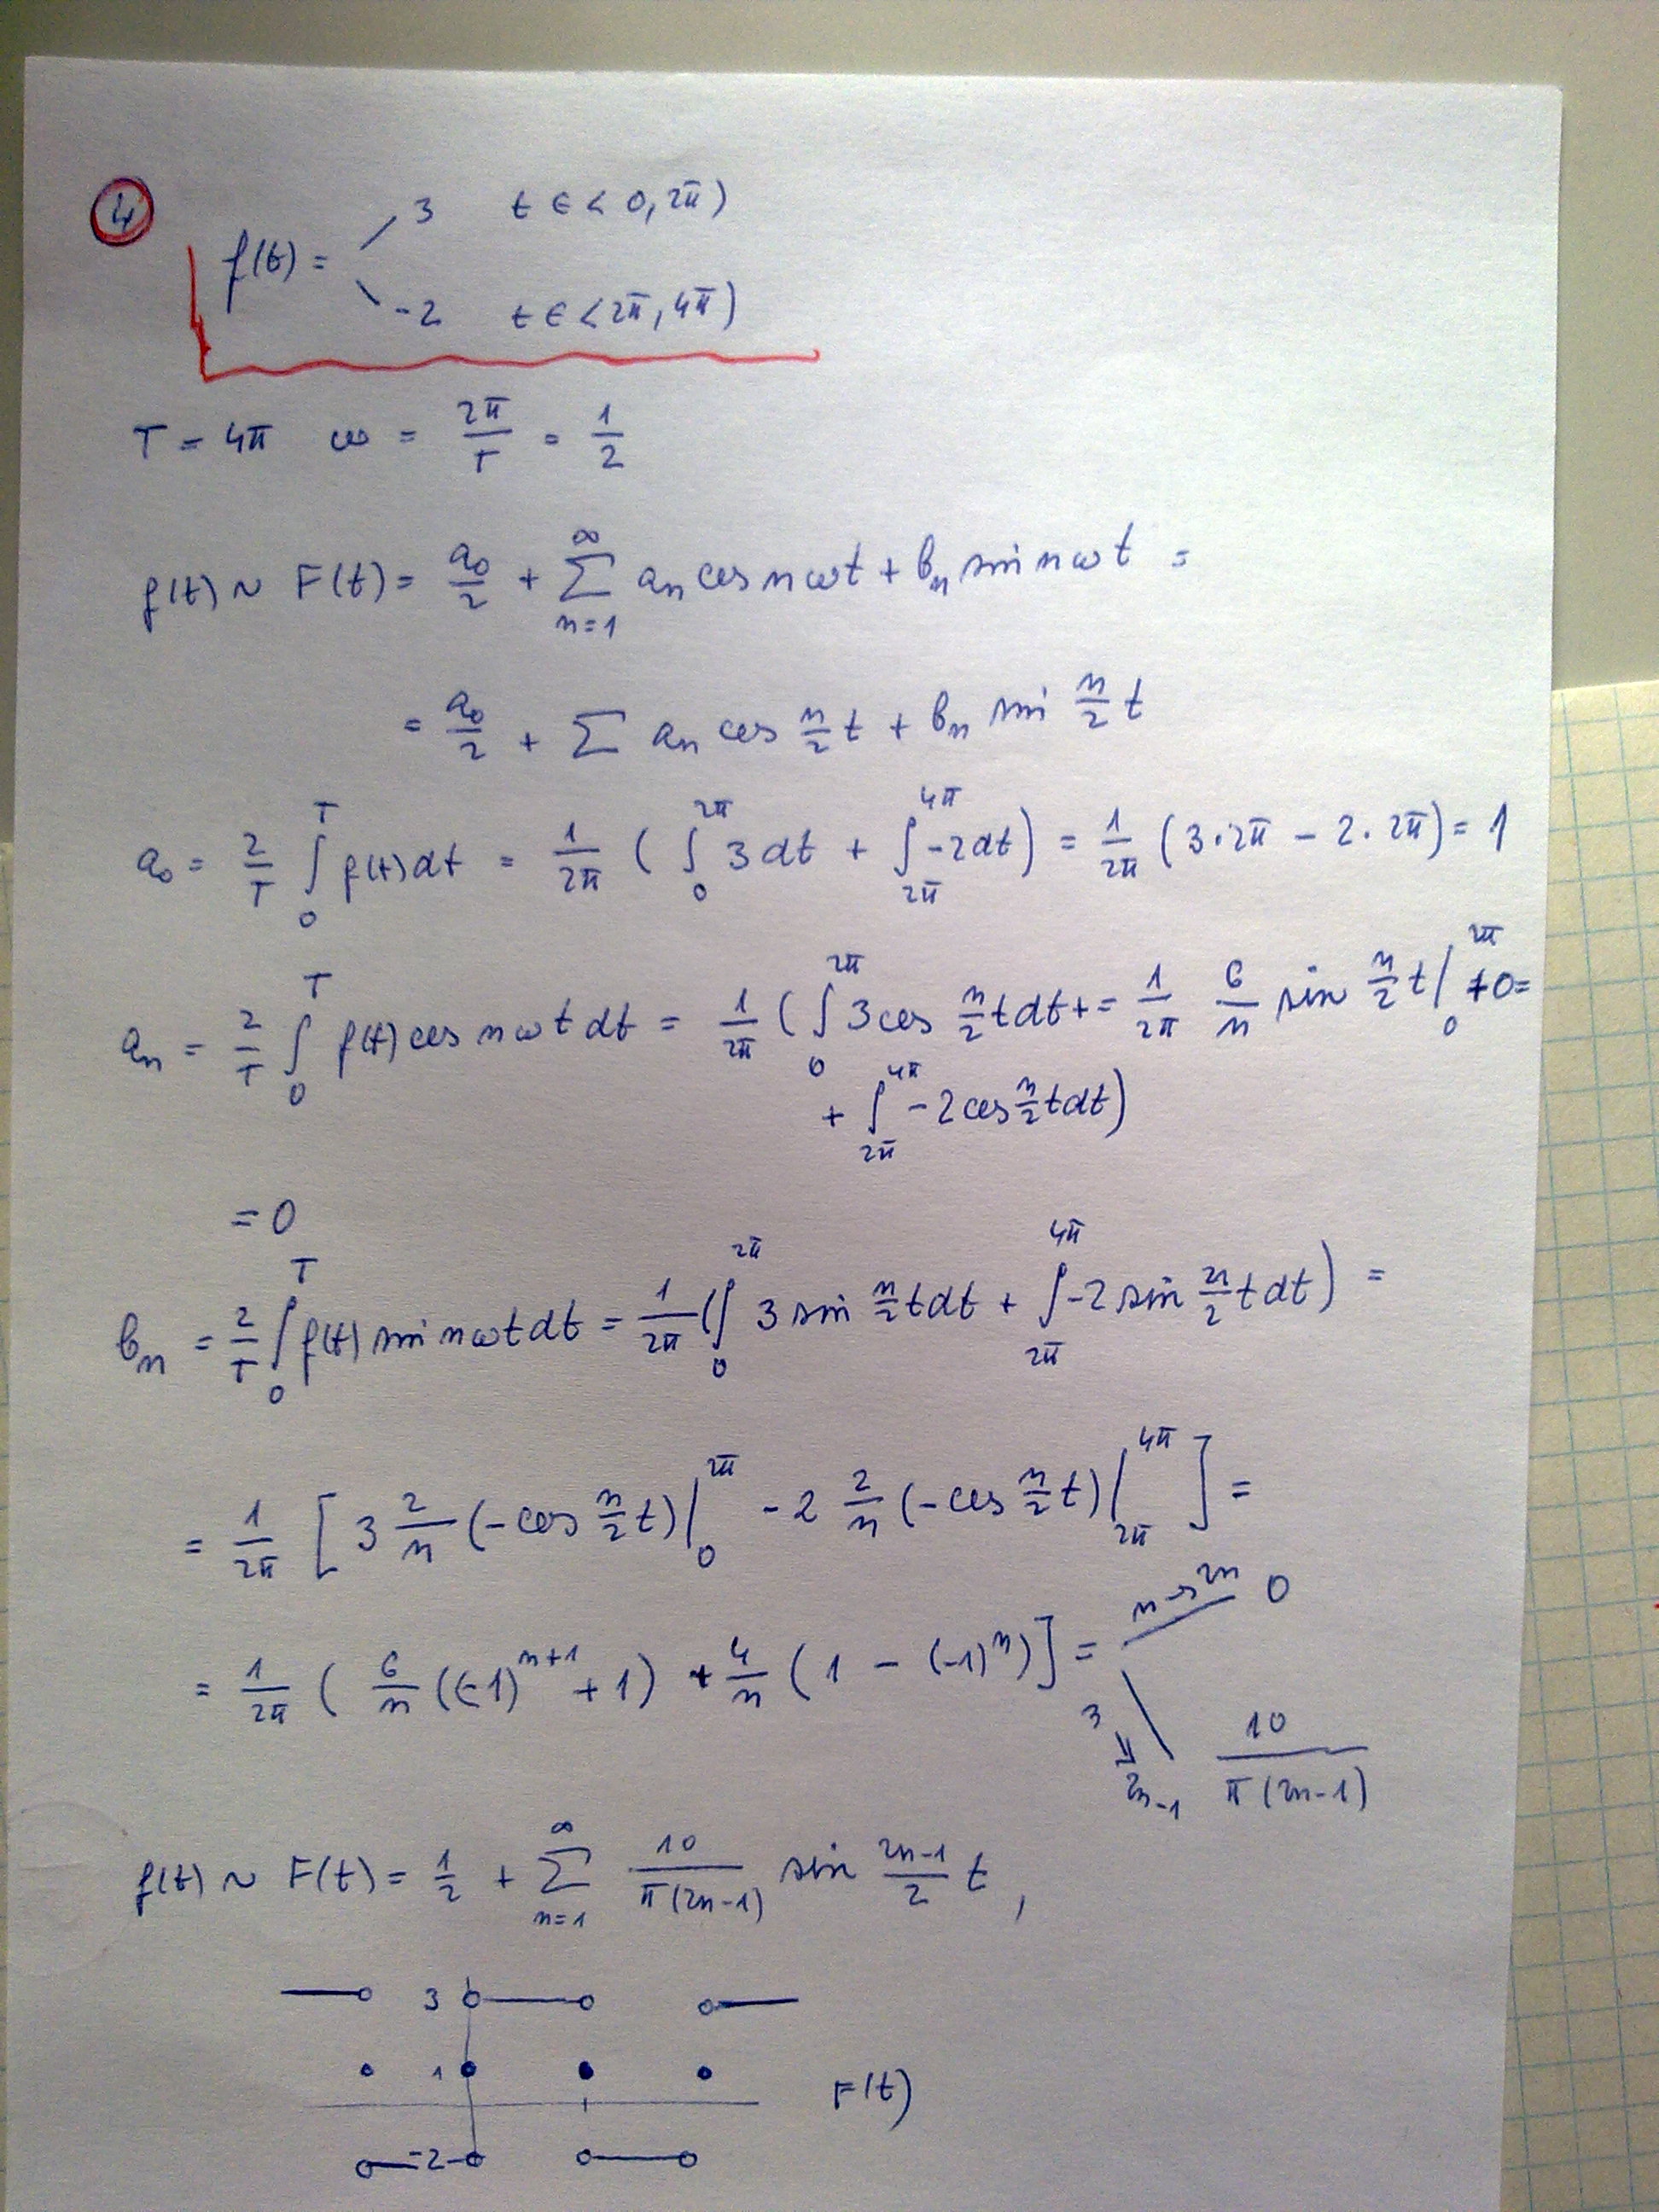 4
f(t) = 3 t ∈ < 0, 2π)
-2 t ∈ < 2π, 4π)
T = 4π ω = 2π/T = 1/2
f(t) ~ F(t) = a₀/2 + ∑_{n=1}^{∞} aₙ cos nωt + bₙ sin nωt =
= a₀/2 + ∑ aₙ cos n/2 t + bₙ sin n/2 t
a₀ = 2/T ∫₀^T f(t) dt = 1/2π ( ∫₀^{2π} 3 dt + ∫_{2π}^{4π} -2 dt) = 1/2π (3·2π - 2·2π) = 1
aₙ = 2/T ∫₀^T f(t) cos nωt dt = 1/2π ( ∫₀^{2π} 3 cos n/2 t dt + = 1/2π 6/n sin n/2 t |₀^{2π} + 0 =
+ ∫_{2π}^{4π} -2 cos n/2 t dt)
= 0
bₙ = 2/T ∫₀^T f(t) sin nωt dt = 1/2π ( ∫₀^{2π} 3 sin n/2 t dt + ∫_{2π}^{4π} -2 sin n/2 t dt) =
= 1/2π [ 3 2/n (-cos n/2 t) |₀^{2π} - 2 2/n (-cos n/2 t) |_{2π}^{4π} ] =
= 1/2π ( 6/n ((-1)^{n+1} + 1) + 4/n (1 - (-1)^n) ] = n→2n 0
n → 2n-1 10/π(2n-1)
f(t) ~ F(t) = 1/2 + ∑_{n=1}^{∞} 10/π(2n-1) sin 2n-1/2 t ,
3
1
F(t)
-2